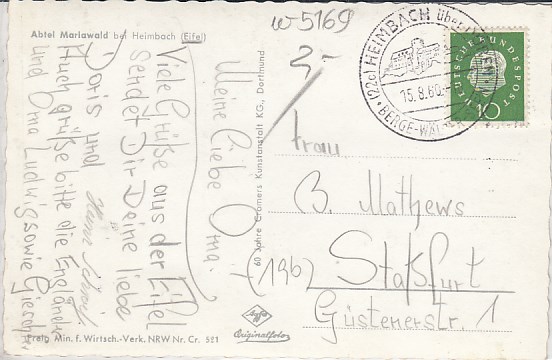 Abtei Mariawald bei Heimbach (Eifel)
w-5169
2,-
Meine liebe Oma!
Viele Grüße aus der Eifel
sendet Dir Deine liebe
Doris und
Auch grüße bitte die
und Oma Ludwig sowie
60 Jahre Cramers Kunstanstalt KG., Dortmund
Agfa
Originalfoto
Freig. Min. f. Wirtsch.-Verk. NRW Nr. Cr. 521
(22c) HEIMBACH über
15.8.60
BERGE-WAL
DEUTSCHE BUNDESPOST
10
Frau
B. Mathews
(19b) Staßfurt
Güstenerstr. 1